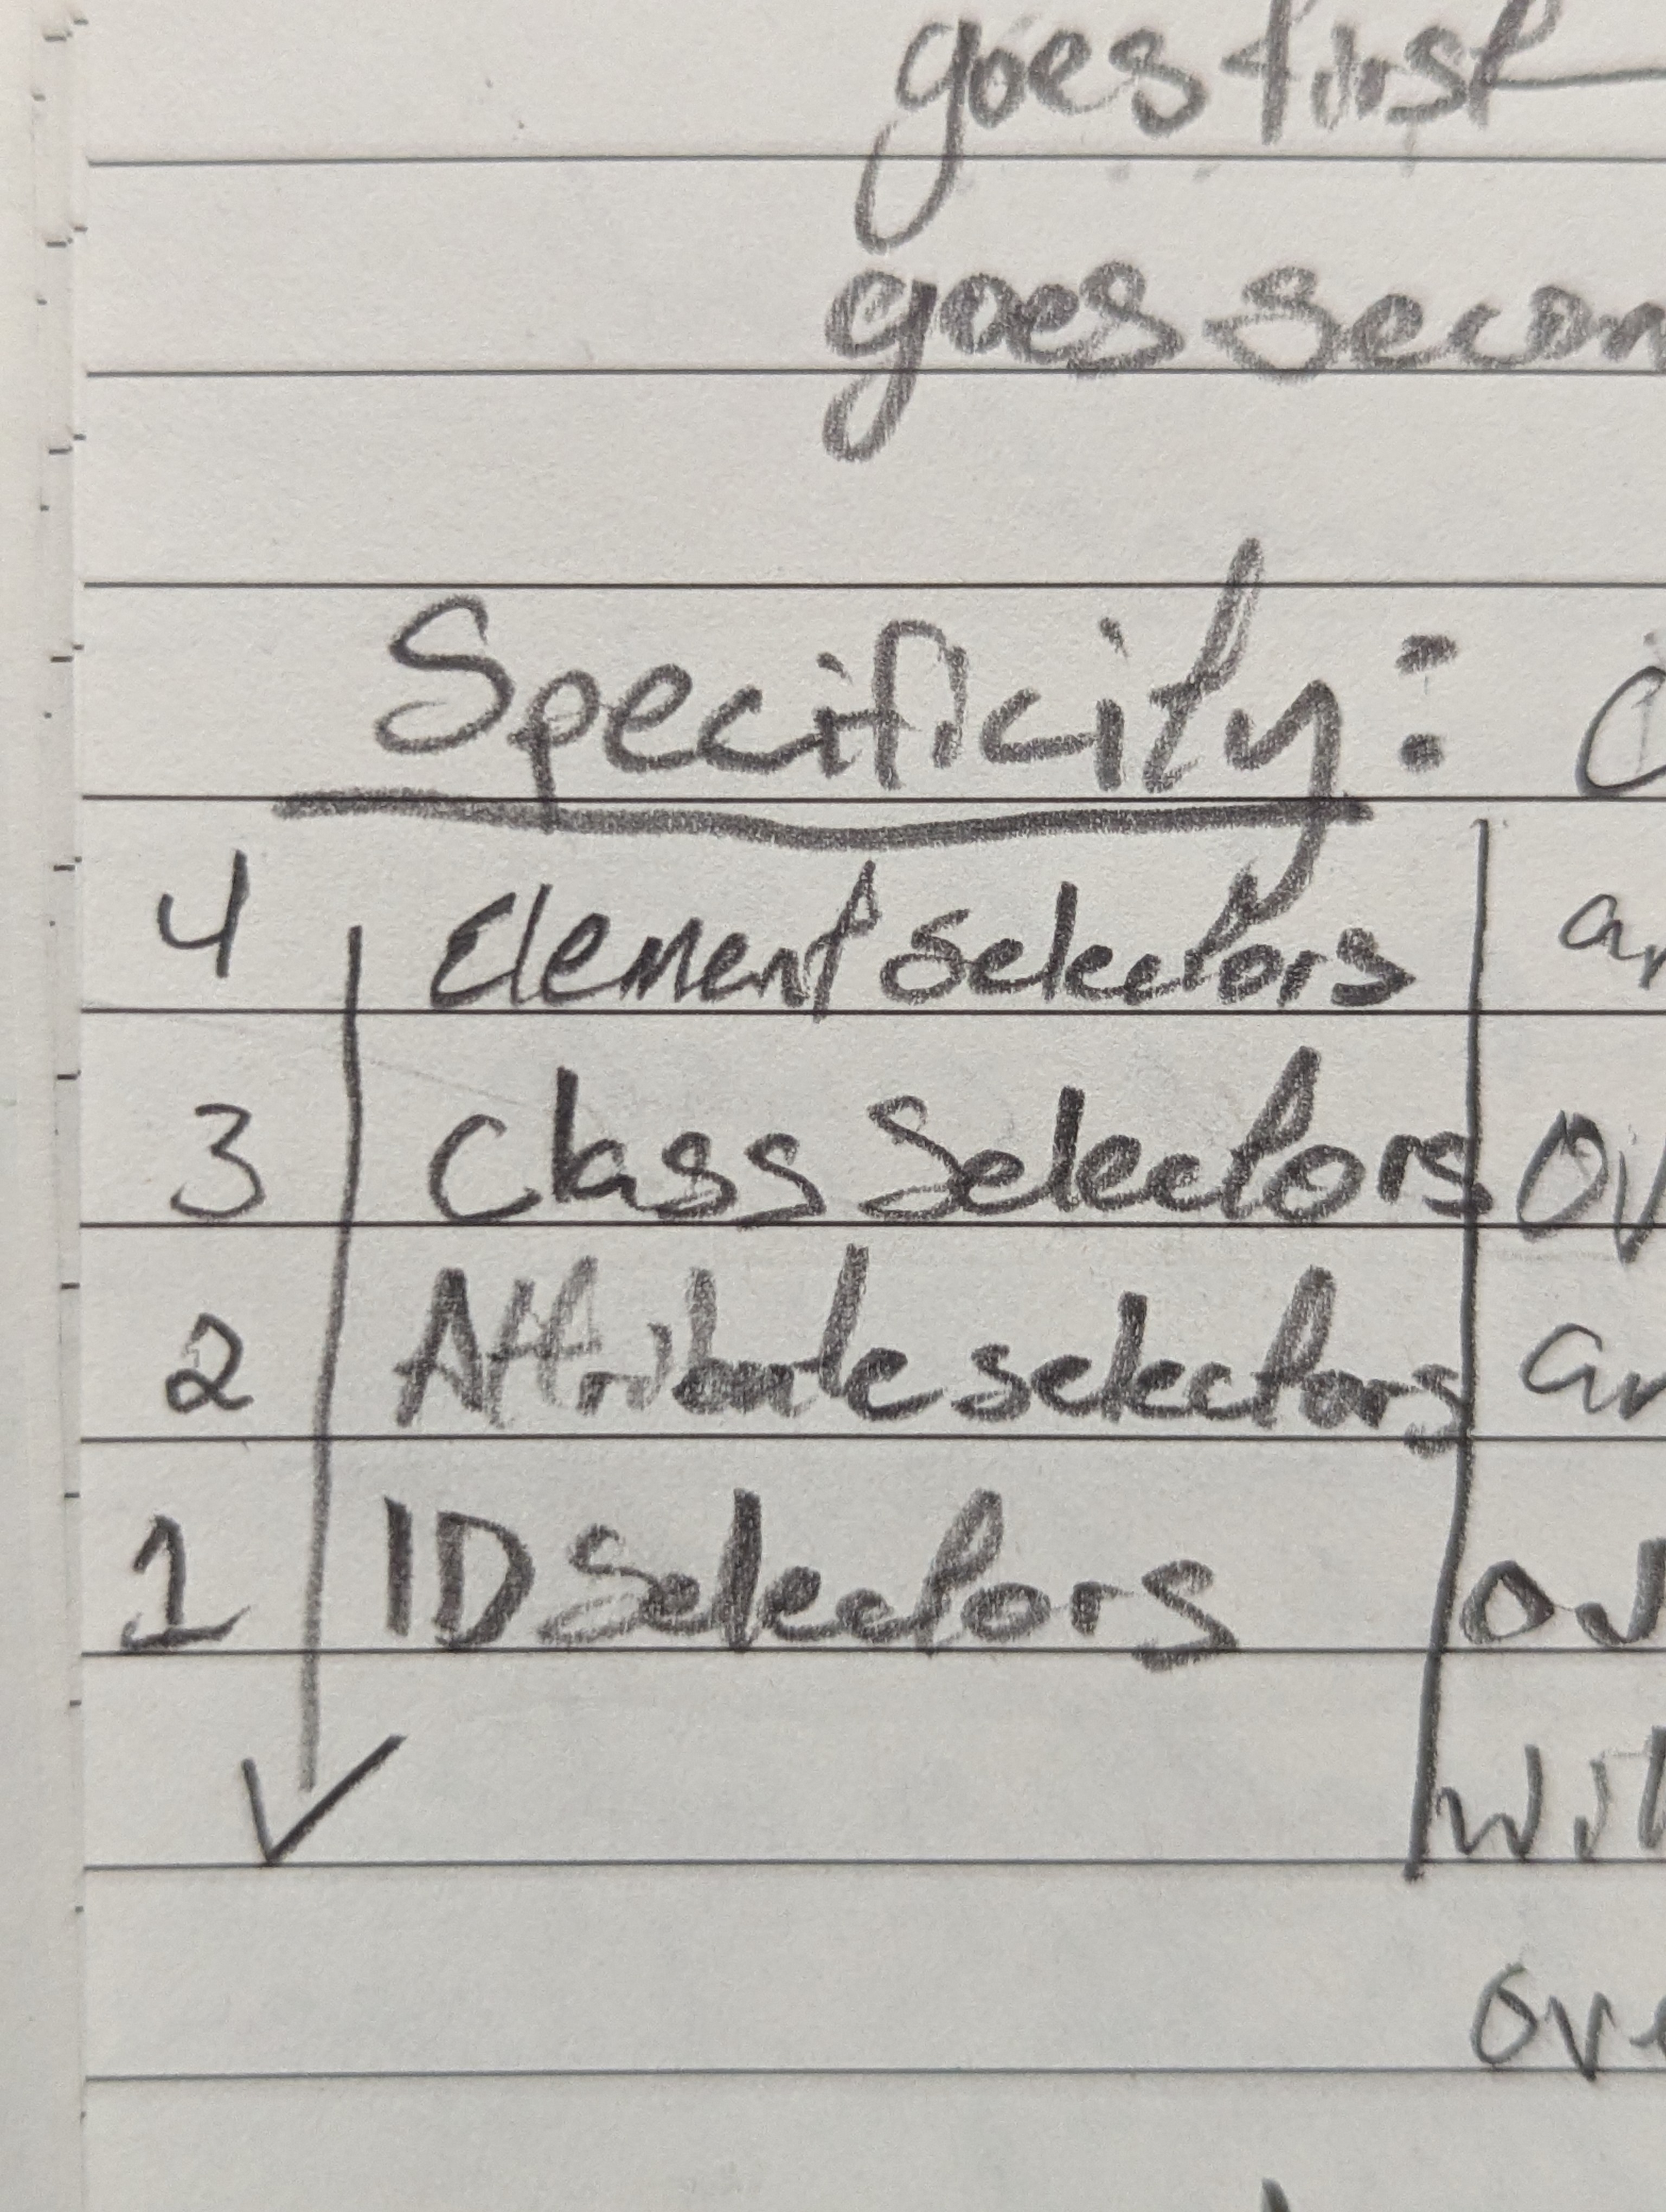 goes first
goes
Specificity:
4 Element selectors
3 Class Selectors
2 Attribute selectors
1 ID Selectors